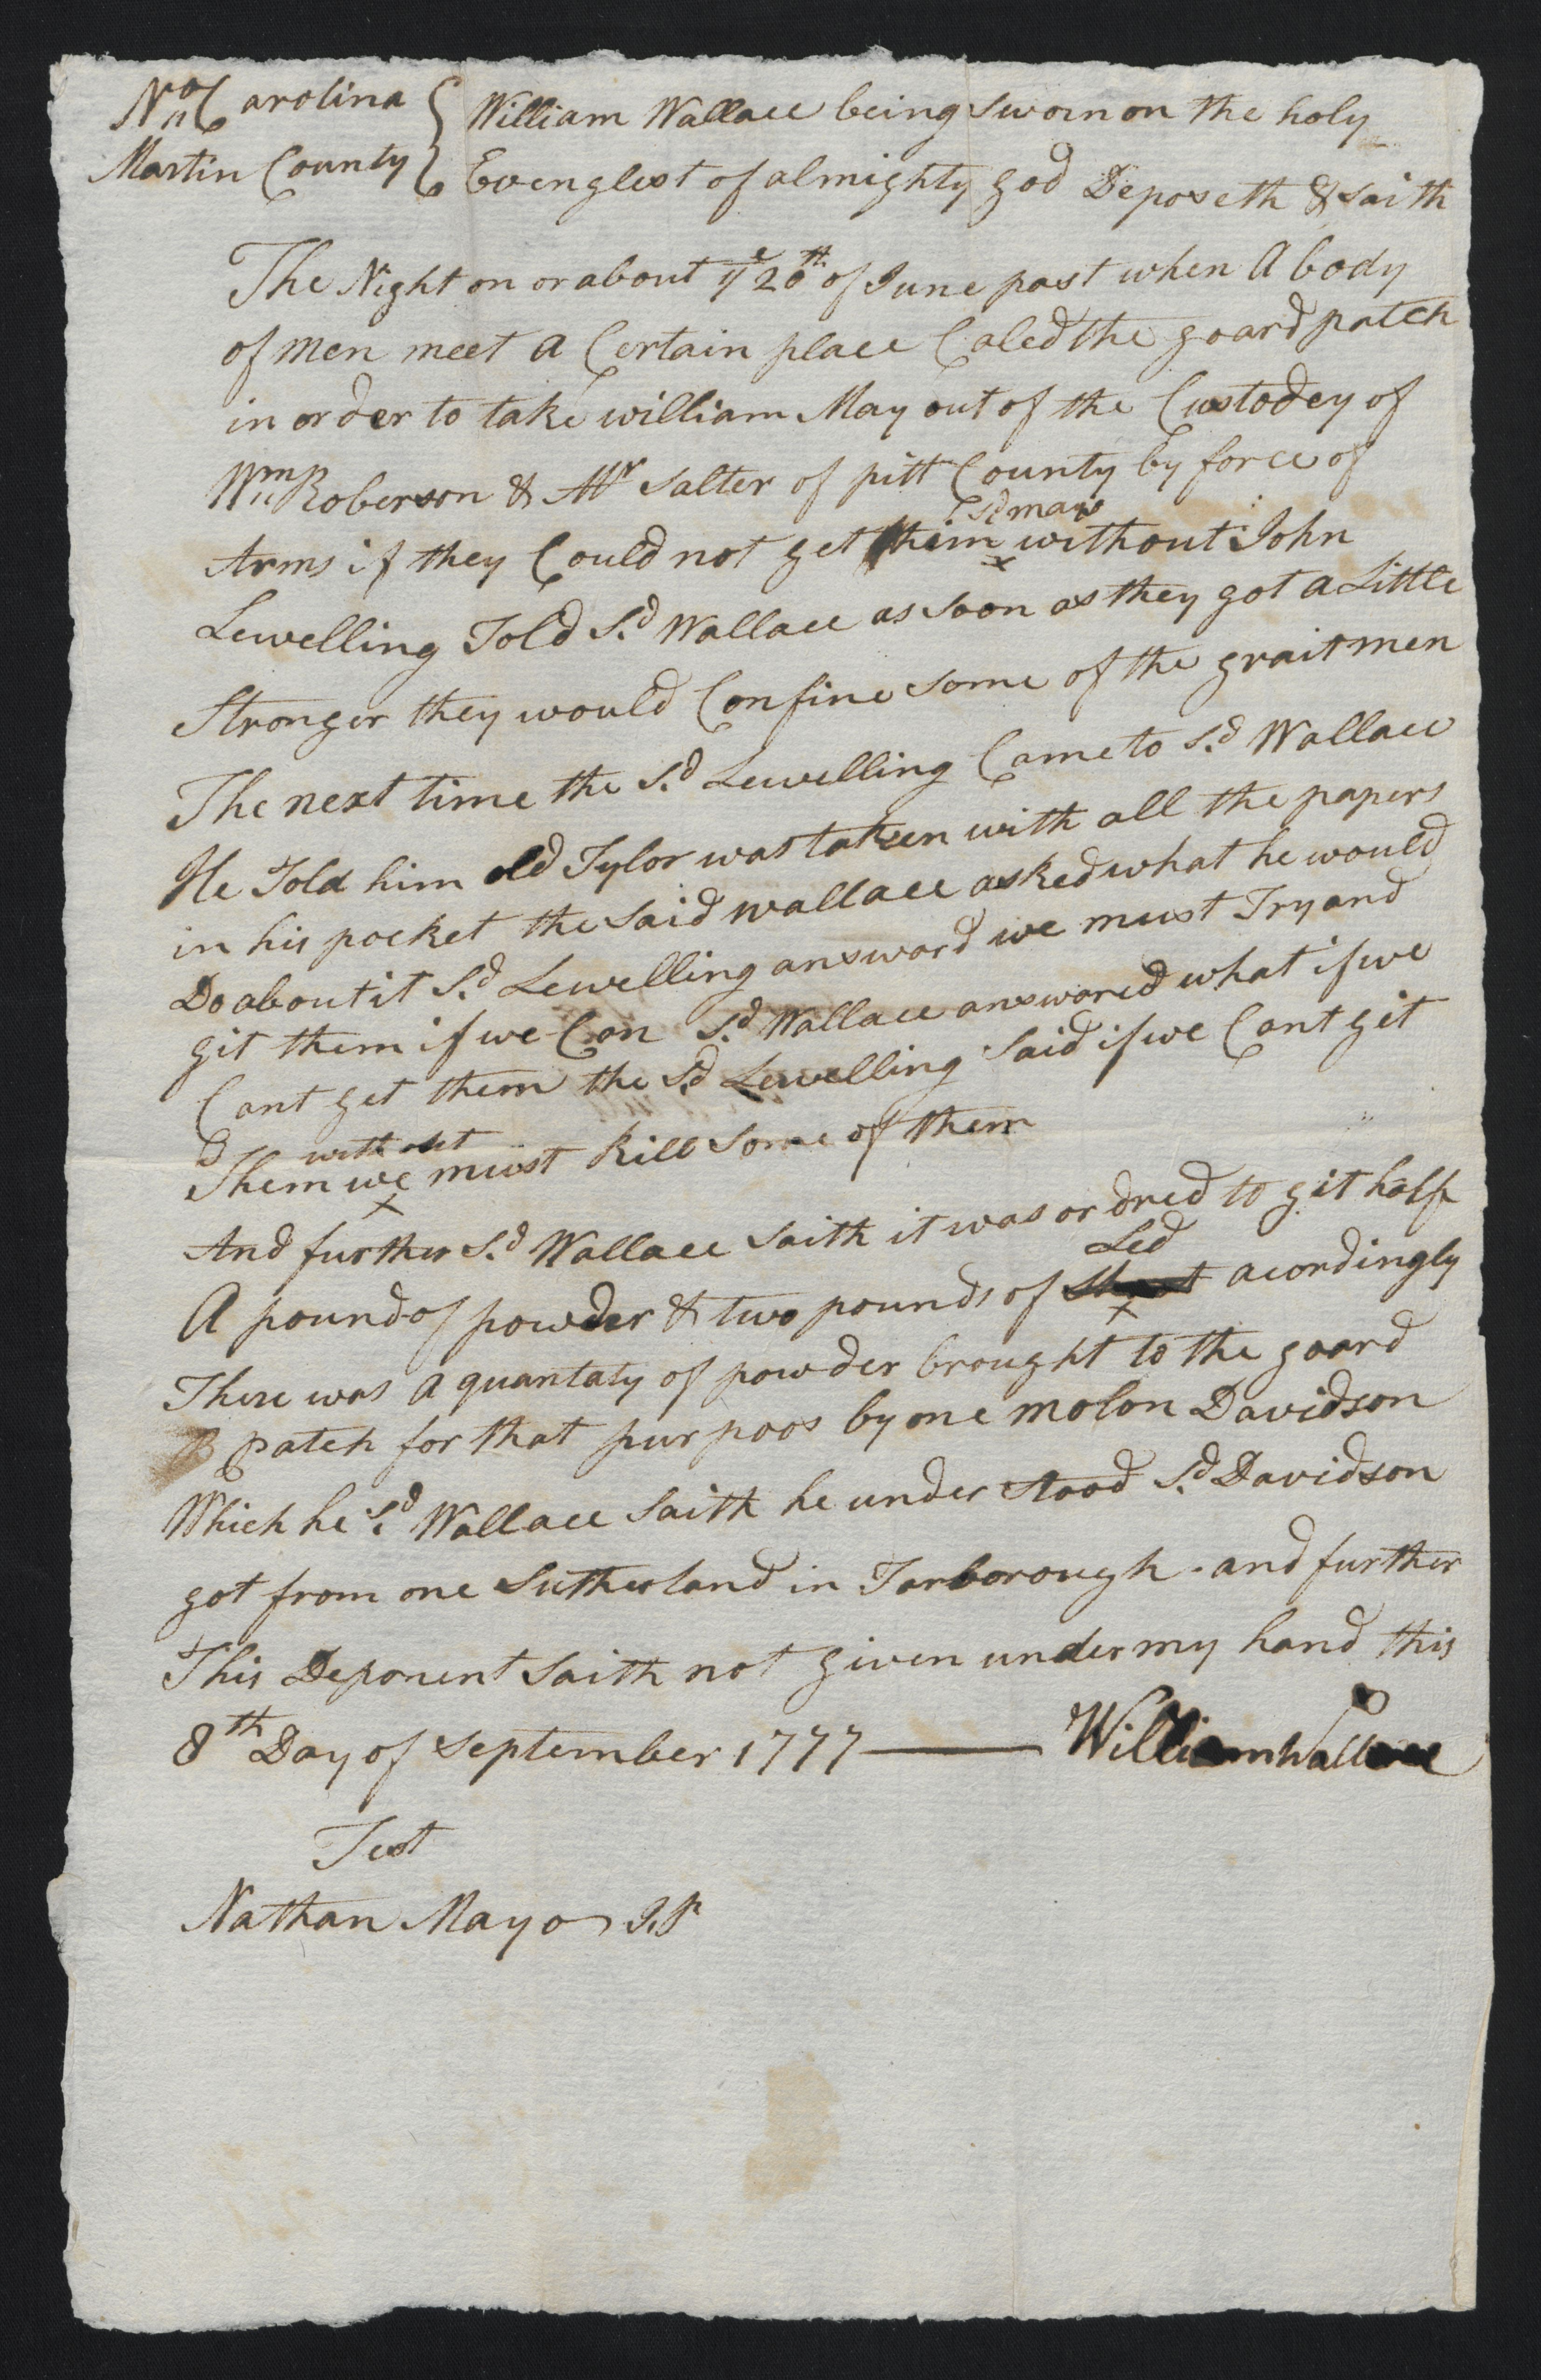 No Carolina
Martin County
William Wallace being sworn on the holy
Evenglest of almighty god Deposeth & saith
The Night on or about ye 20th of June past when A body
of men meet A Certain place Caled the goard patch
in order to take william May out of the Custodey of
Wm Roberson & Mr Salter of pitt County by force of
sd may
Arms if they Could not get him without John
Lewelling Told Sd Wallace as soon as they got a Little
Stronger they would Confine some of the grait men
The next time the Sd Lewelling Came to Sd Wallace
He Told him old Tylor was taken with all the papers
in his pocket the Said Wallace asked what he would
Do about it Sd Lewelling answard we must Try and
git them if we Can Sd Wallace answared what if we
Cant get them the Sd Lewelling Said if we Cant git
without
Them we must kill some of them
And further Sd Wallace saith it was ordred to git half
Led
A pound of powder & two pounds of acordingly
There was A quantaty of powder brought to the goard
patch for that purpoos by one molon Davidson
Which he Sd Wallace saith he under stood Sd Davidson
got from one Sutherland in Tarborough. and further
This Deponent saith not given under my hand this
8th Day of September 1777 William Wallace
Test
Nathan Mayo J.P